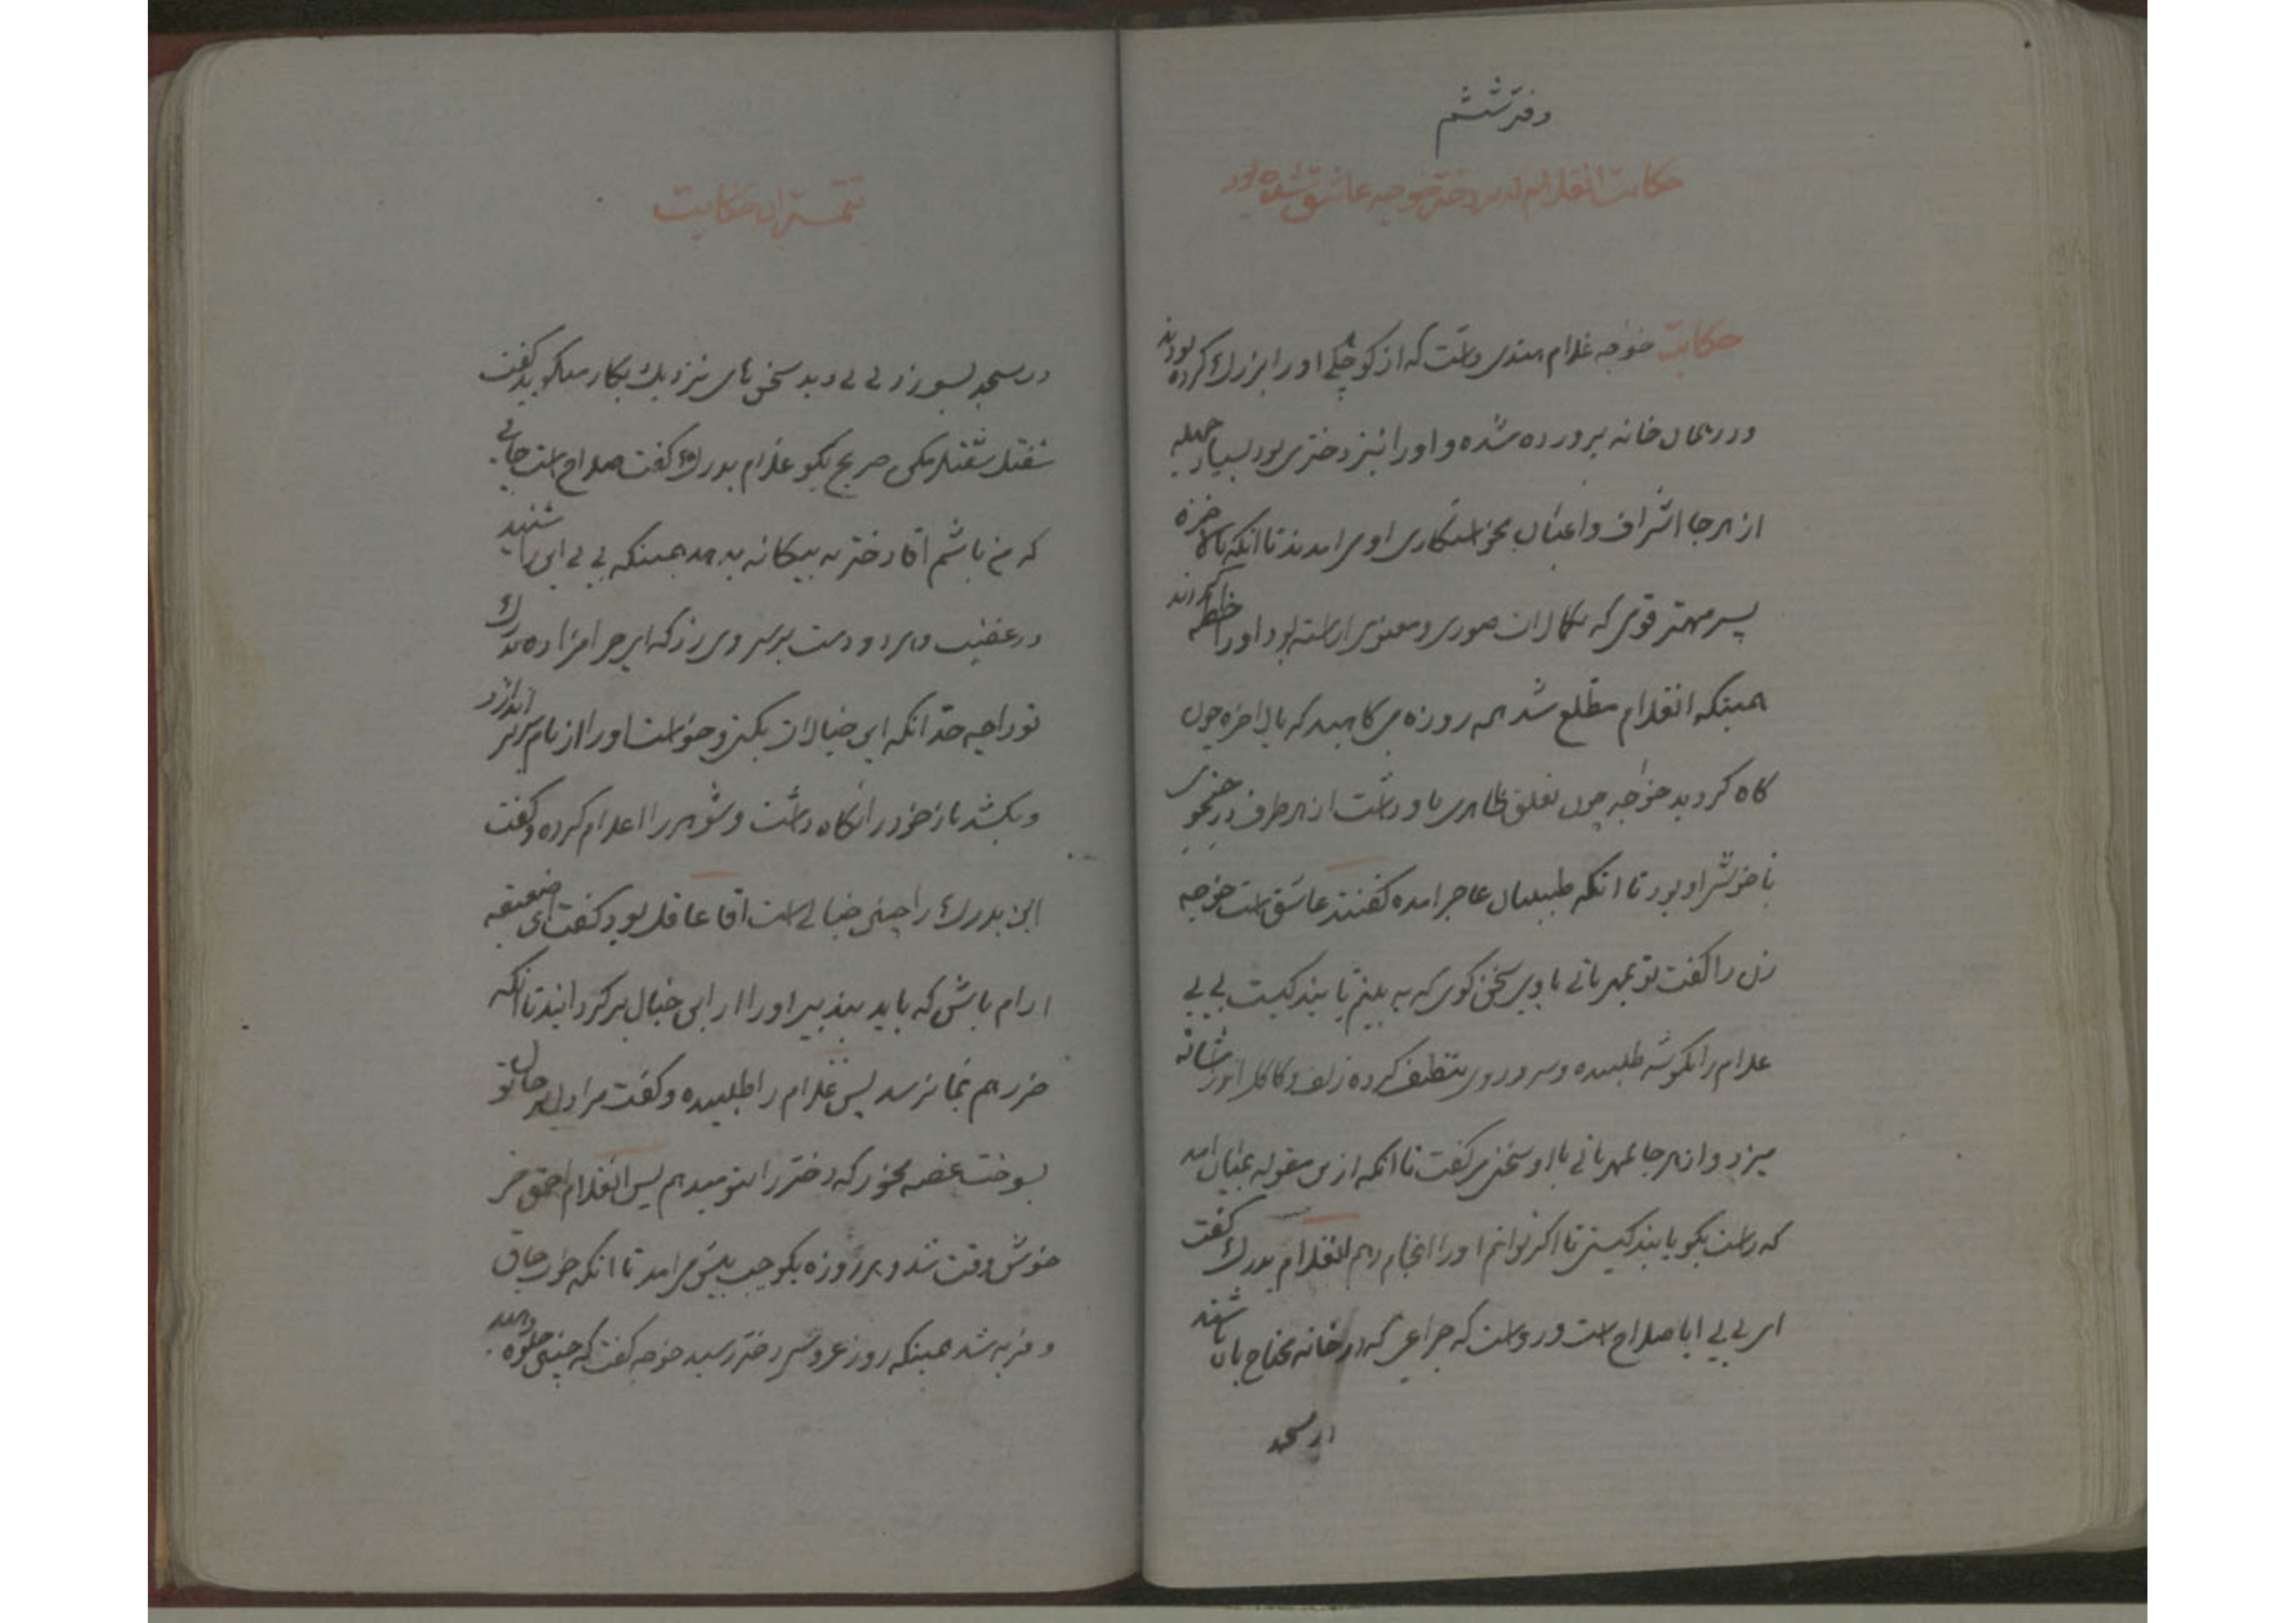 دفتر ششم
حکایت انغلام که بر دختر خوجه عاشق شده بود
حکایت خوجه غلام هندی داشت که از کوچکی او را بزرک کرده بودند
و در همان خانه پرورده شده و او را نیز دختری بود بسیار جمیله
از هر جا اشراف و اعیان بخواستکاری او می امدند تا انکه بالاخره
پسر مهتر قوی که بکمالات صوری و معنوی اراسته بود او را خطبه کردند
همینکه انغلام مطلع شد همه روزه می کاهید که بالاخره چون
کاه کردید خواجه چون تعلق ظاهری باو داشت از هر طرف در جستجوی
ناخوشی او بود تا انکه طبیبان عاجز امده کفتند عاشق است خوجه
زن را کفت تو بمهربانی با وی سخن کوی که به بینم پابند کیست بی بی
غلام را بکوشه طلبیده و سر و روی تنظیف کرده زلف و کاکل او را شانه
میزد و از هر جا بمهربانی با او سخن می کفت تا انکه ازین مقوله بمیان امد
که راست بکو پابند کیستی تا اکر توانم او را انجام دهم انغلام بدرک کفت
ای بی بی ایا صلاح است و رواست که چراغی که در خانه محتاج بان باشند
در مسجد
تتمه این حکایت
در مسجد بسوزد بی بی دید سخن های نزدیک بکار میکوید کفت
شفتل شفتل مکن صریح بکو غلام بدرک کفت صلاح است جائی
که من باشم اقا دختر به بیکانه بدهد همینکه بی بی این را شنید
در غضب و دو دست بر سر وی زد که ای حرامزاده بدرک
تو را چه حد انکه این خیالات بکنی و خواست او را از بام بزیر اندازد
و بکشد باز خود را نکاه داشت و شوهر را اعلام کرده و کفت
این بدرک را چنین خیالی است اقا عاقل بود کفت ای ضعیفه
ارام باش که باید بتدبیر او را از این خیال برکردانید تا انکه
ضرر هم بما نرسد پس غلام را طلبیده و کفت مرا دل بر حال تو
بسوخت غصه مخور که دختر را بتو میدهم پس انغلام احمق خر
خوش وقت شد و هر روزه یکوجب پیش می امد تا انکه خوب چاق
و فربه شد همینکه روز عروسی دختر رسید خوجه کفت که چنین جلوه دهید